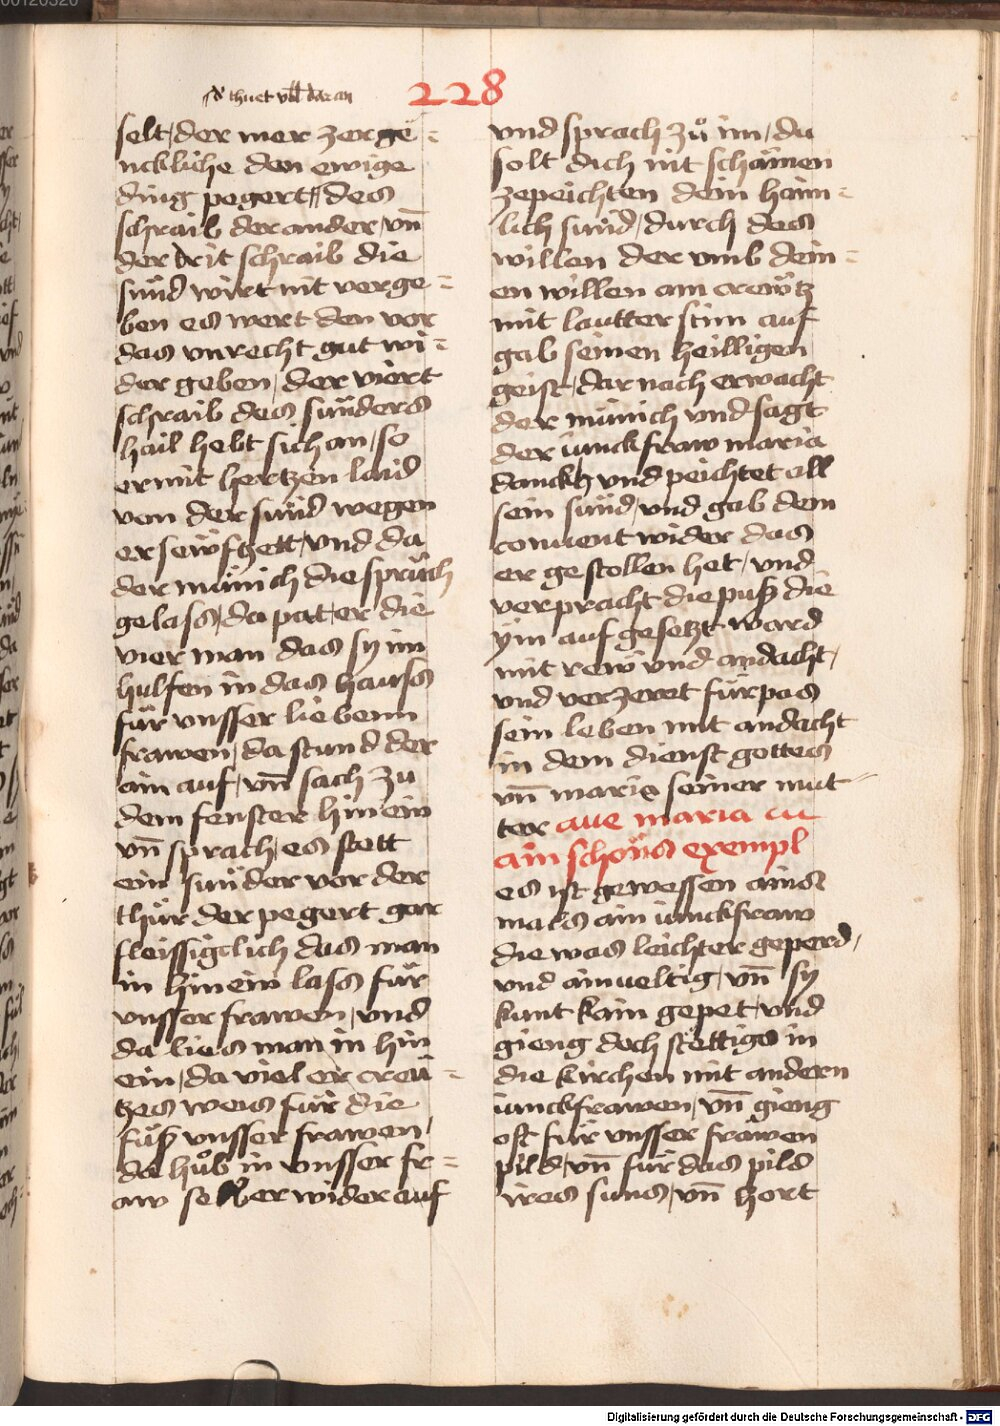 228
thuet vbl daran
selt / der mer zerge=
nckliche den ewige
ding pegert // des
schraib der ander / vn̄
der drit schraib die
sünd wirt nit verge=
ben es wert den vor
das vnrecht gut wi=
der geben / der viert
schraib des sünders
hail hebt sich an / so
er mit hertzen laid
von der sünd wegen
er sewfftzett / vnd da
der münich die sprüch
gelass / da pat er die
vier man das sy im
hulfen in das hauss
für vnsser liebenn
frawen / da stund der
ain auf / vn̄ sach zu
dem fenster hinein
vn̄ sprach / es stett
ein sünder vor der
thür der pegert gar
fleissigclich das man
in hinein lass für
vnsser frawen / vnd
da lies man in hin
ein / da viel er creü=
tzes weis für die
füß vnsser frawen /
da hůb in vnsser fr=
aw selber wider auf
vnd sprach zů im / du
solt dich nit schämen
zepeichten dein haim=
lich sünd / durch des
willen der vmb dein=
en willen am crewtz
mit lautter stim auf
gab seinen heilligen
geist / dar nach erwacht
der münich vnd sagt
der iunckfraw maria
danckh vnd peichtet all
sein sünd / vnd gab dem
conuent wider das
er gestollen het / vnd
verpracht die puß die
ÿm auf gesetzt ward
mit rew vnd andacht /
vnd verzeret fürpas
sein leben mit andacht
in dem dienst gottes
vn̄ maria seiner mut=
ter aue maria
ain schöns exempl
es ist gewessen ains
mals ain iunckfraw
die was leichter geperd /
vnd ainueltig / vn̄ sy
kunt kain gepet / vnd
gieng doch stettigs in
die kirchen mit andern
iunckfrawen / vn̄ gieng
oft für vnsser frawen
pild / vn̄ für das pild
ires suns / vn̄ hort
Digitalisierung gefördert durch die Deutsche Forschungsgemeinschaft - DFG